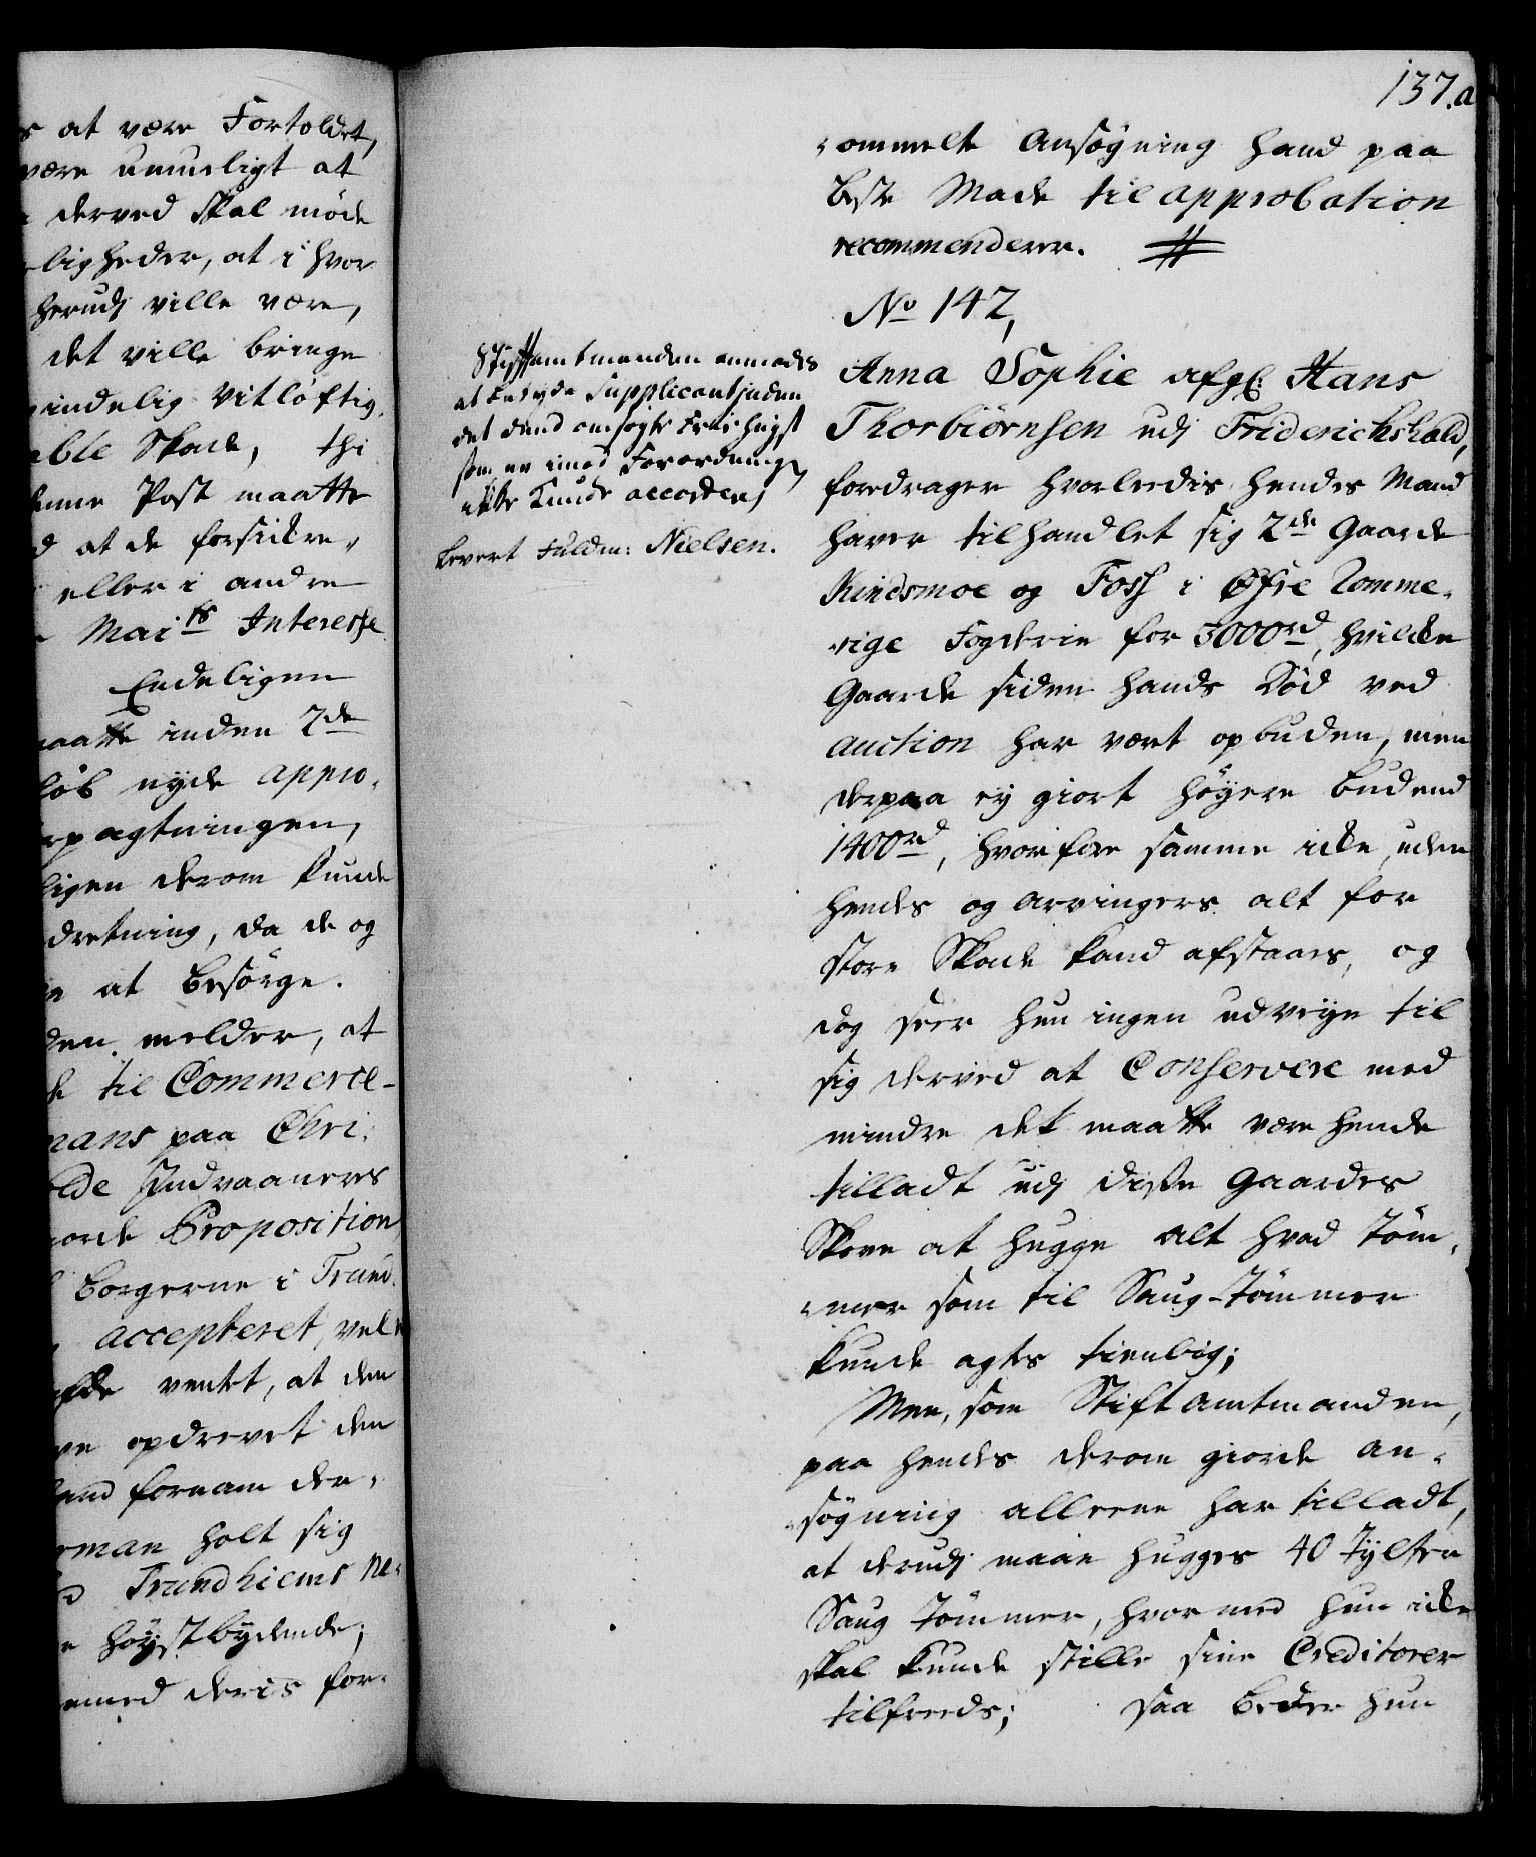 s at være Fortoldet,
være umueligt at
derved skal møde
ligheder, at i hvor
herudj ville være,
det ville bringe
indelig vitløftig,
able Skade, thi
enne Post maatte
d at de forsickre,
eller i andre
Mai:ts Interesse
Endeligen
maatte inden 2de
løb nyde appro,
rpagtningen,
ligen derom kunde
dretning, da de og
at besørge.
den melder, at
til Commerce-
mans paa Chri,
lde Indvaaneres
iorde Proposition
borgerne i Trund,
accepteret, vel
ventet, at den
opdrevet den
and fornam der,
rman holt sig
Trundhiems Ne,
høystbydende;
emed deris for,
137.a
ommelte Ansøgning hand paa
beste Maade til approbation
recommenderer.
No 142,
Stiftamtmanden anmodes
at betyde Supplicantinden
det dend ansøgte frie hugst
som er imod Forordning
ikke kunde accorderes
levert Fuldm: Nielsen.
Anna Sophie afg: Hans
Thorbiørnsen udj Friderichshald,
foredrager hvorledis hendes Mand
haver tilhandlet sig 2de Gaarde
Kindsmoe og Foss i Øfre Romme,
rige Fogderie for 3000rd, hvilcke
Gaarde siden hands Død ved
auction har vært opbuden, men
derpaa ey giort høyere bud end
1400rd, hvorfore samme icke, uden
hendes og arvingers alt for
store Skade kand afstaaes, og
dog seer hun ingen udveye til
sig derved at Conservere med
mindre det maatte være hende
tilladt udj disse Gaardes
Skove at hugge alt hvad Tøm,
mer som til Saug-Tømmer
kunde agtes tienlig;
Men, som Stiftamtmanden,
paa hendes derom giorde an,
søgning alleene har tilladt,
at derudj maae hugges 40 Tylter
Saug Tømmer, hvormed hun icke
skal kunde stille sine Creditorer
tilfreds; saa beder hun